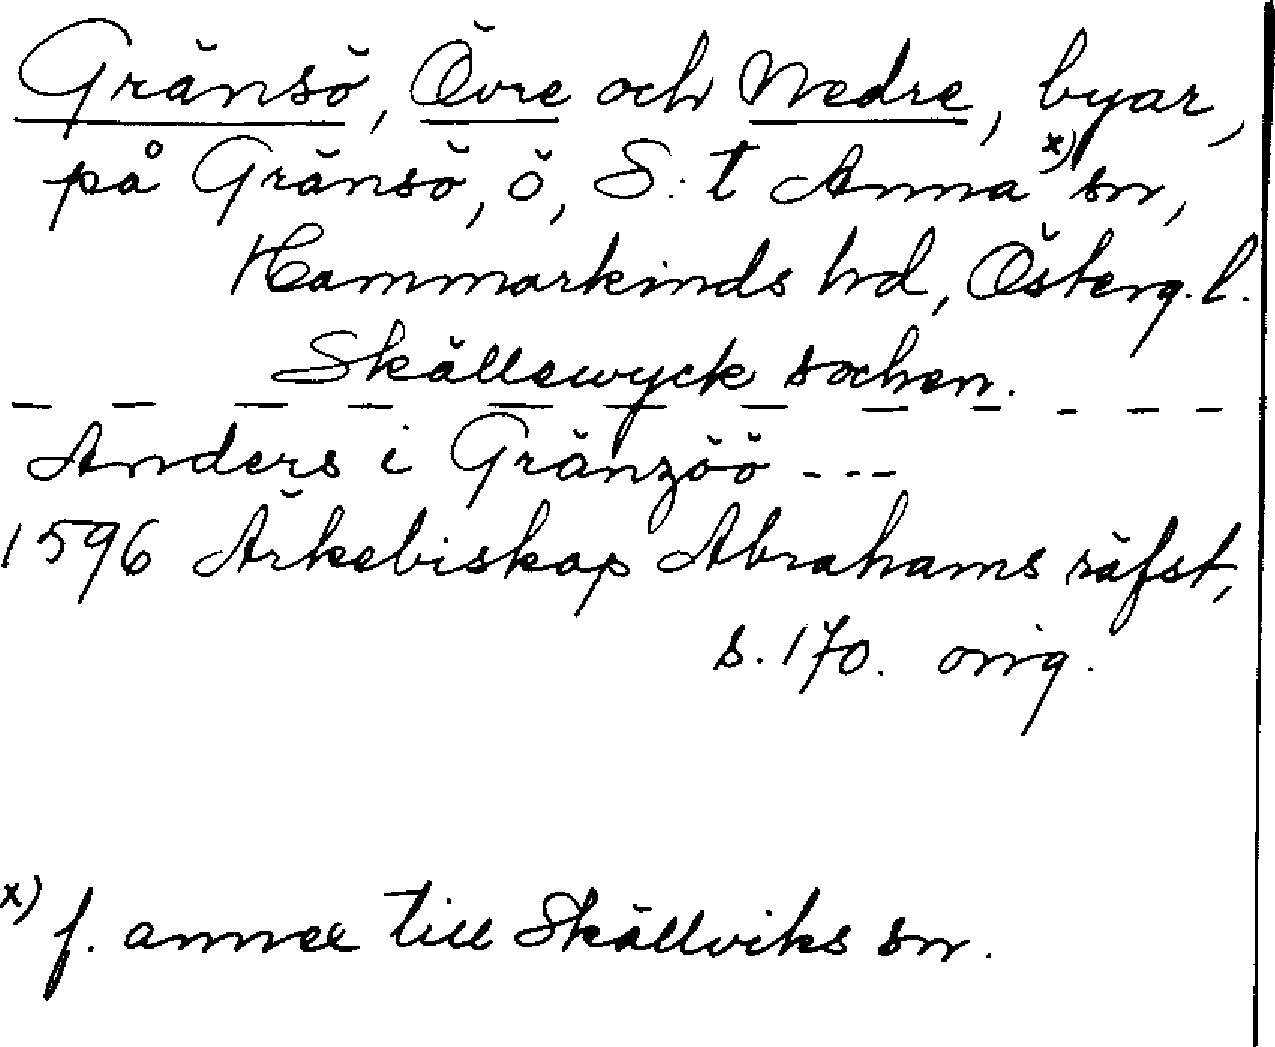 Gränsö, Övre och Nedre, byar,
på Gränsö, ö, S:t Anna x) sn,
Hammarkinds hd, Österg. l.
Skällewyck sochen.
Anders i Gränzöö ---
1596 Ärkebiskop Abrahams räfst,
s. 170. orig.
x) f. annex till Skällviks sn.